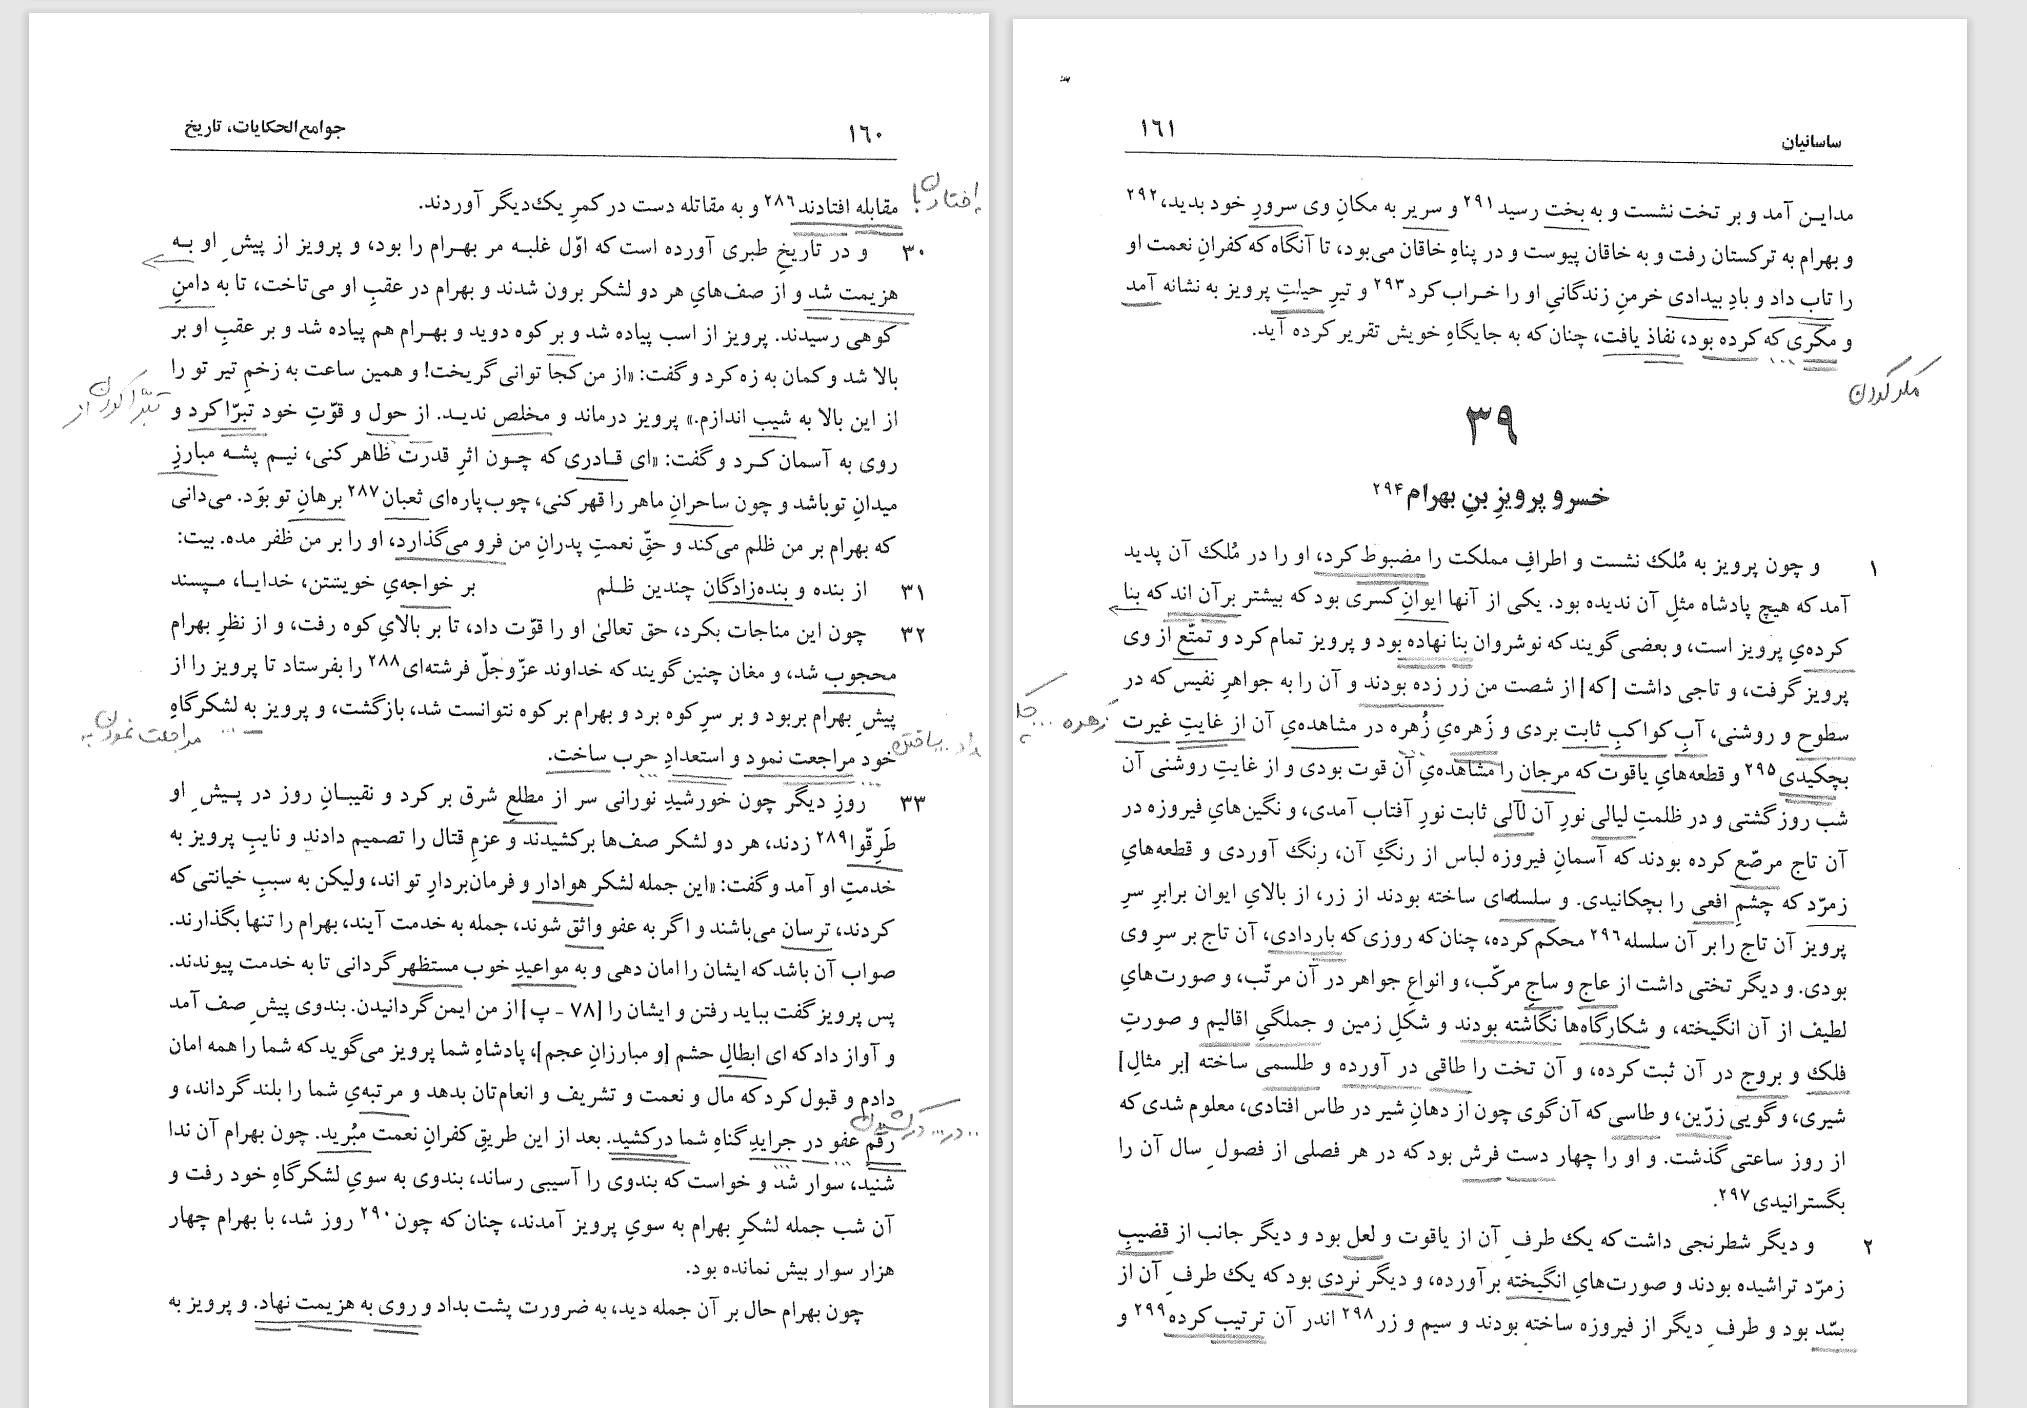 جوامع‌الحکایات، تاریخ
۱۶۰
مقابله افتادند۲۸۶ و به مقاتله دست در کمرِ یک‌دیگر آوردند.
۳۰ و در تاریخِ طبری آورده است که اوّل غلبه مر بهرام را بود، و پرویز از پیشِ او به
هزیمت شد و از صف‌هایِ هر دو لشکر برون شدند و بهرام در عقبِ او می‌تاخت، تا به دامنِ
کوهی رسیدند. پرویز از اسب پیاده شد و بر کوه دوید و بهرام هم پیاده شد و بر عقبِ او بر
بالا شد و کمان به زه کرد و گفت: «از من کجا توانی گریخت! و همین ساعت به زخمِ تیر تو را
از این بالا به شیب اندازم.» پرویز درماند و مخلص ندید. از حول و قوّتِ خود تبرّا کرد و
روی به آسمان کرد و گفت: «ای قادری که چون اثرِ قدرت ظاهر کنی، نیم پشه مبارزِ
میدانِ تو باشد و چون ساحرانِ ماهر را قهر کنی، چوب‌پاره‌ای ثعبان۲۸۷ برهانِ تو بوَد. می‌دانی
که بهرام بر من ظلم می‌کند و حقِّ نعمتِ پدرانِ من فرو می‌گذارد، او را بر من ظفر مده. بیت:
۳۱ از بنده و بنده‌زادگان چندین ظلم بر خواجه‌یِ خویشتن، خدایا، مپسند
۳۲ چون این مناجات بکرد، حق تعالیٰ او را قوّت داد، تا بر بالایِ کوه رفت، و از نظرِ بهرام
محجوب شد، و مغان چنین گویند که خداوند عزّوجلّ فرشته‌ای۲۸۸ را بفرستاد تا پرویز را از
پیشِ بهرام بربود و بر سرِ کوه برد و بهرام بر کوه نتوانست شد، بازگشت، و پرویز به لشکرگاهِ
خود مراجعت نمود و استعدادِ حرب ساخت.
۳۳ روزِ دیگر چون خورشیدِ نورانی سر از مطلعِ شرق بر کرد و نقیبانِ روز در پیشِ او
طَرِقّوا۲۸۹ زدند، هر دو لشکر صف‌ها برکشیدند و عزمِ قتال را تصمیم دادند و نایبِ پرویز به
خدمتِ او آمد و گفت: «این جمله لشکر هوادار و فرمان‌بردارِ تو اند، ولیکن به سببِ خیانتی که
کردند، ترسان می‌باشند و اگر به عفو واثق شوند، جمله به خدمت آیند، بهرام را تنها بگذارند.
صواب آن باشد که ایشان را امان دهی و به مواعیدِ خوب مستظهر گردانی تا به خدمت پیوندند.
پس پرویز گفت بباید رفتن و ایشان را [۷۸ ـ پ] از من ایمن گردانیدن. بندوی پیشِ صف آمد
و آواز داد که ای ابطالِ حشم [و مبارزانِ عجم]، پادشاهِ شما پرویز می‌گوید که شما را همه امان
دادم و قبول کرد که مال و نعمت و تشریف و انعام‌تان بدهد و مرتبه‌یِ شما را بلند گرداند، و
رقمِ عفو در جرایدِ گناهِ شما درکشید. بعد از این طریقِ کفرانِ نعمت مبُرید. چون بهرام آن ندا
شنید، سوار شد و خواست که بندوی را آسیبی رساند، بندوی به سویِ لشکرگاهِ خود رفت و
آن شب جمله لشکرِ بهرام به سویِ پرویز آمدند، چنان که چون۲۹۰ روز شد، با بهرام چهار
هزار سوار بیش نمانده بود.
چون بهرام حال بر آن جمله دید، به ضرورت پشت بداد و روی به هزیمت نهاد. و پرویز به
افتادن با
تبرّا کردن از
مراجعت نمودن به
در... درکشیدن
ساسانیان
۱۶۱
مداین آمد و بر تخت نشست و به بخت رسید۲۹۱ و سریر به مکانِ وی سرورِ خود بدید،۲۹۲
و بهرام به ترکستان رفت و به خاقان پیوست و در پناهِ خاقان می‌بود، تا آنگاه که کفرانِ نعمت او
را تاب داد و بادِ بیدادی خرمنِ زندگانیِ او را خراب کرد۲۹۳ و تیرِ حیلتِ پرویز به نشانه آمد
و مکری که کرده بود، نفاذ یافت، چنان که به جایگاهِ خویش تقریر کرده آید.
مکر کردن
۳۹
خسرو پرویزِ بنِ بهرام۲۹۴
۱ و چون پرویز به مُلک نشست و اطرافِ مملکت را مضبوط کرد، او را در مُلک آن پدید
آمد که هیچ پادشاه مثلِ آن ندیده بود. یکی از آنها ایوانِ کسری بود که بیشتر برآن اند که بنا
کرده‌یِ پرویز است، و بعضی گویند که نوشروان بنا نهاده بود و پرویز تمام کرد و تمتّع از وی
پرویز گرفت، و تاجی داشت [که] از شصت من زر زده بودند و آن را به جواهرِ نفیس که در
سطوح و روشنی، آبِ کواکبِ ثابت بردی و زَهره‌یِ زُهره در مشاهده‌یِ آن از غایتِ غیرت
بچکیدی۲۹۵ و قطعه‌هایِ یاقوت که مرجان را مشاهده‌یِ آن قوت بودی و از غایتِ روشنی آن
شب روز گشتی و در ظلمتِ لیالی نورِ آن لآلی ثابت نورِ آفتاب آمدی، و نگین‌هایِ فیروزه در
آن تاج مرصّع کرده بودند که آسمانِ فیروزه لباس از رنگِ آن، رنگ آوردی و قطعه‌هایِ
زمرّد که چشمِ افعی را بچکانیدی. و سلسله‌ای ساخته بودند از زر، از بالایِ ایوان برابرِ سرِ
پرویز آن تاج را بر آن سلسله۲۹۶ محکم کرده، چنان که روزی که بار دادی، آن تاج بر سرِ وی
بودی. و دیگر تختی داشت از عاج و ساجِ مرکّب، و انواعِ جواهر در آن مرتّب، و صورت‌هایِ
لطیف از آن انگیخته، و شکارگاه‌ها نگاشته بودند و شکلِ زمین و جملگیِ اقالیم و صورتِ
فلک و بروج در آن ثبت کرده، و آن تخت را طاقی در آورده و طلسمی ساخته [بر مثالِ]
شیری، و گویی زرّین، و طاسی که آن گوی چون از دهانِ شیر در طاس افتادی، معلوم شدی که
از روز ساعتی گذشت. و او را چهار دست فرش بود که در هر فصلی از فصولِ سال آن را
بگسترانیدی۲۹۷.
۲ و دیگر شطرنجی داشت که یک طرفِ آن از یاقوت و لعل بود و دیگر جانب از قضیبِ
زمرّد تراشیده بودند و صورت‌هایِ انگیخته برآورده، و دیگر نردی بود که یک طرفِ آن از
بسّد بود و طرفِ دیگر از فیروزه ساخته بودند و سیم و زر۲۹۸ اندر آن ترتیب کرده۲۹۹ و